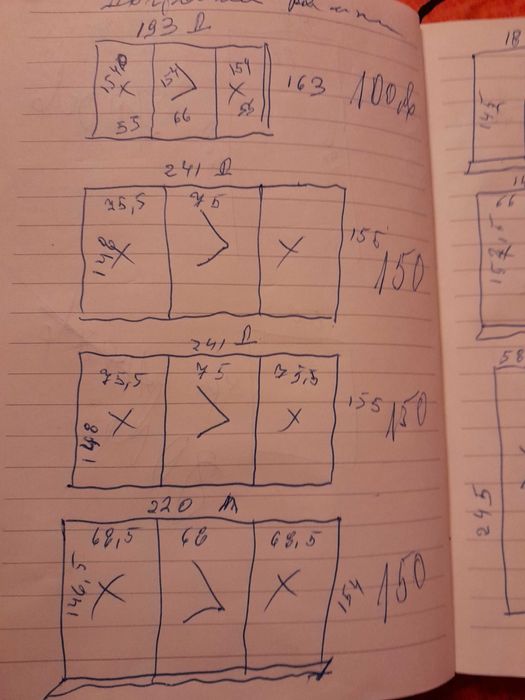 193 Д
154 154 154
X > X 163 100 др
55 66 55
241 Д
75,5 75
148 X > X 155 150
241 Д
75,5 75 75,5
148 X > X 155 150
220 м
68,5 68 68,5
146,5 X > X 154 150
18
145
58
245